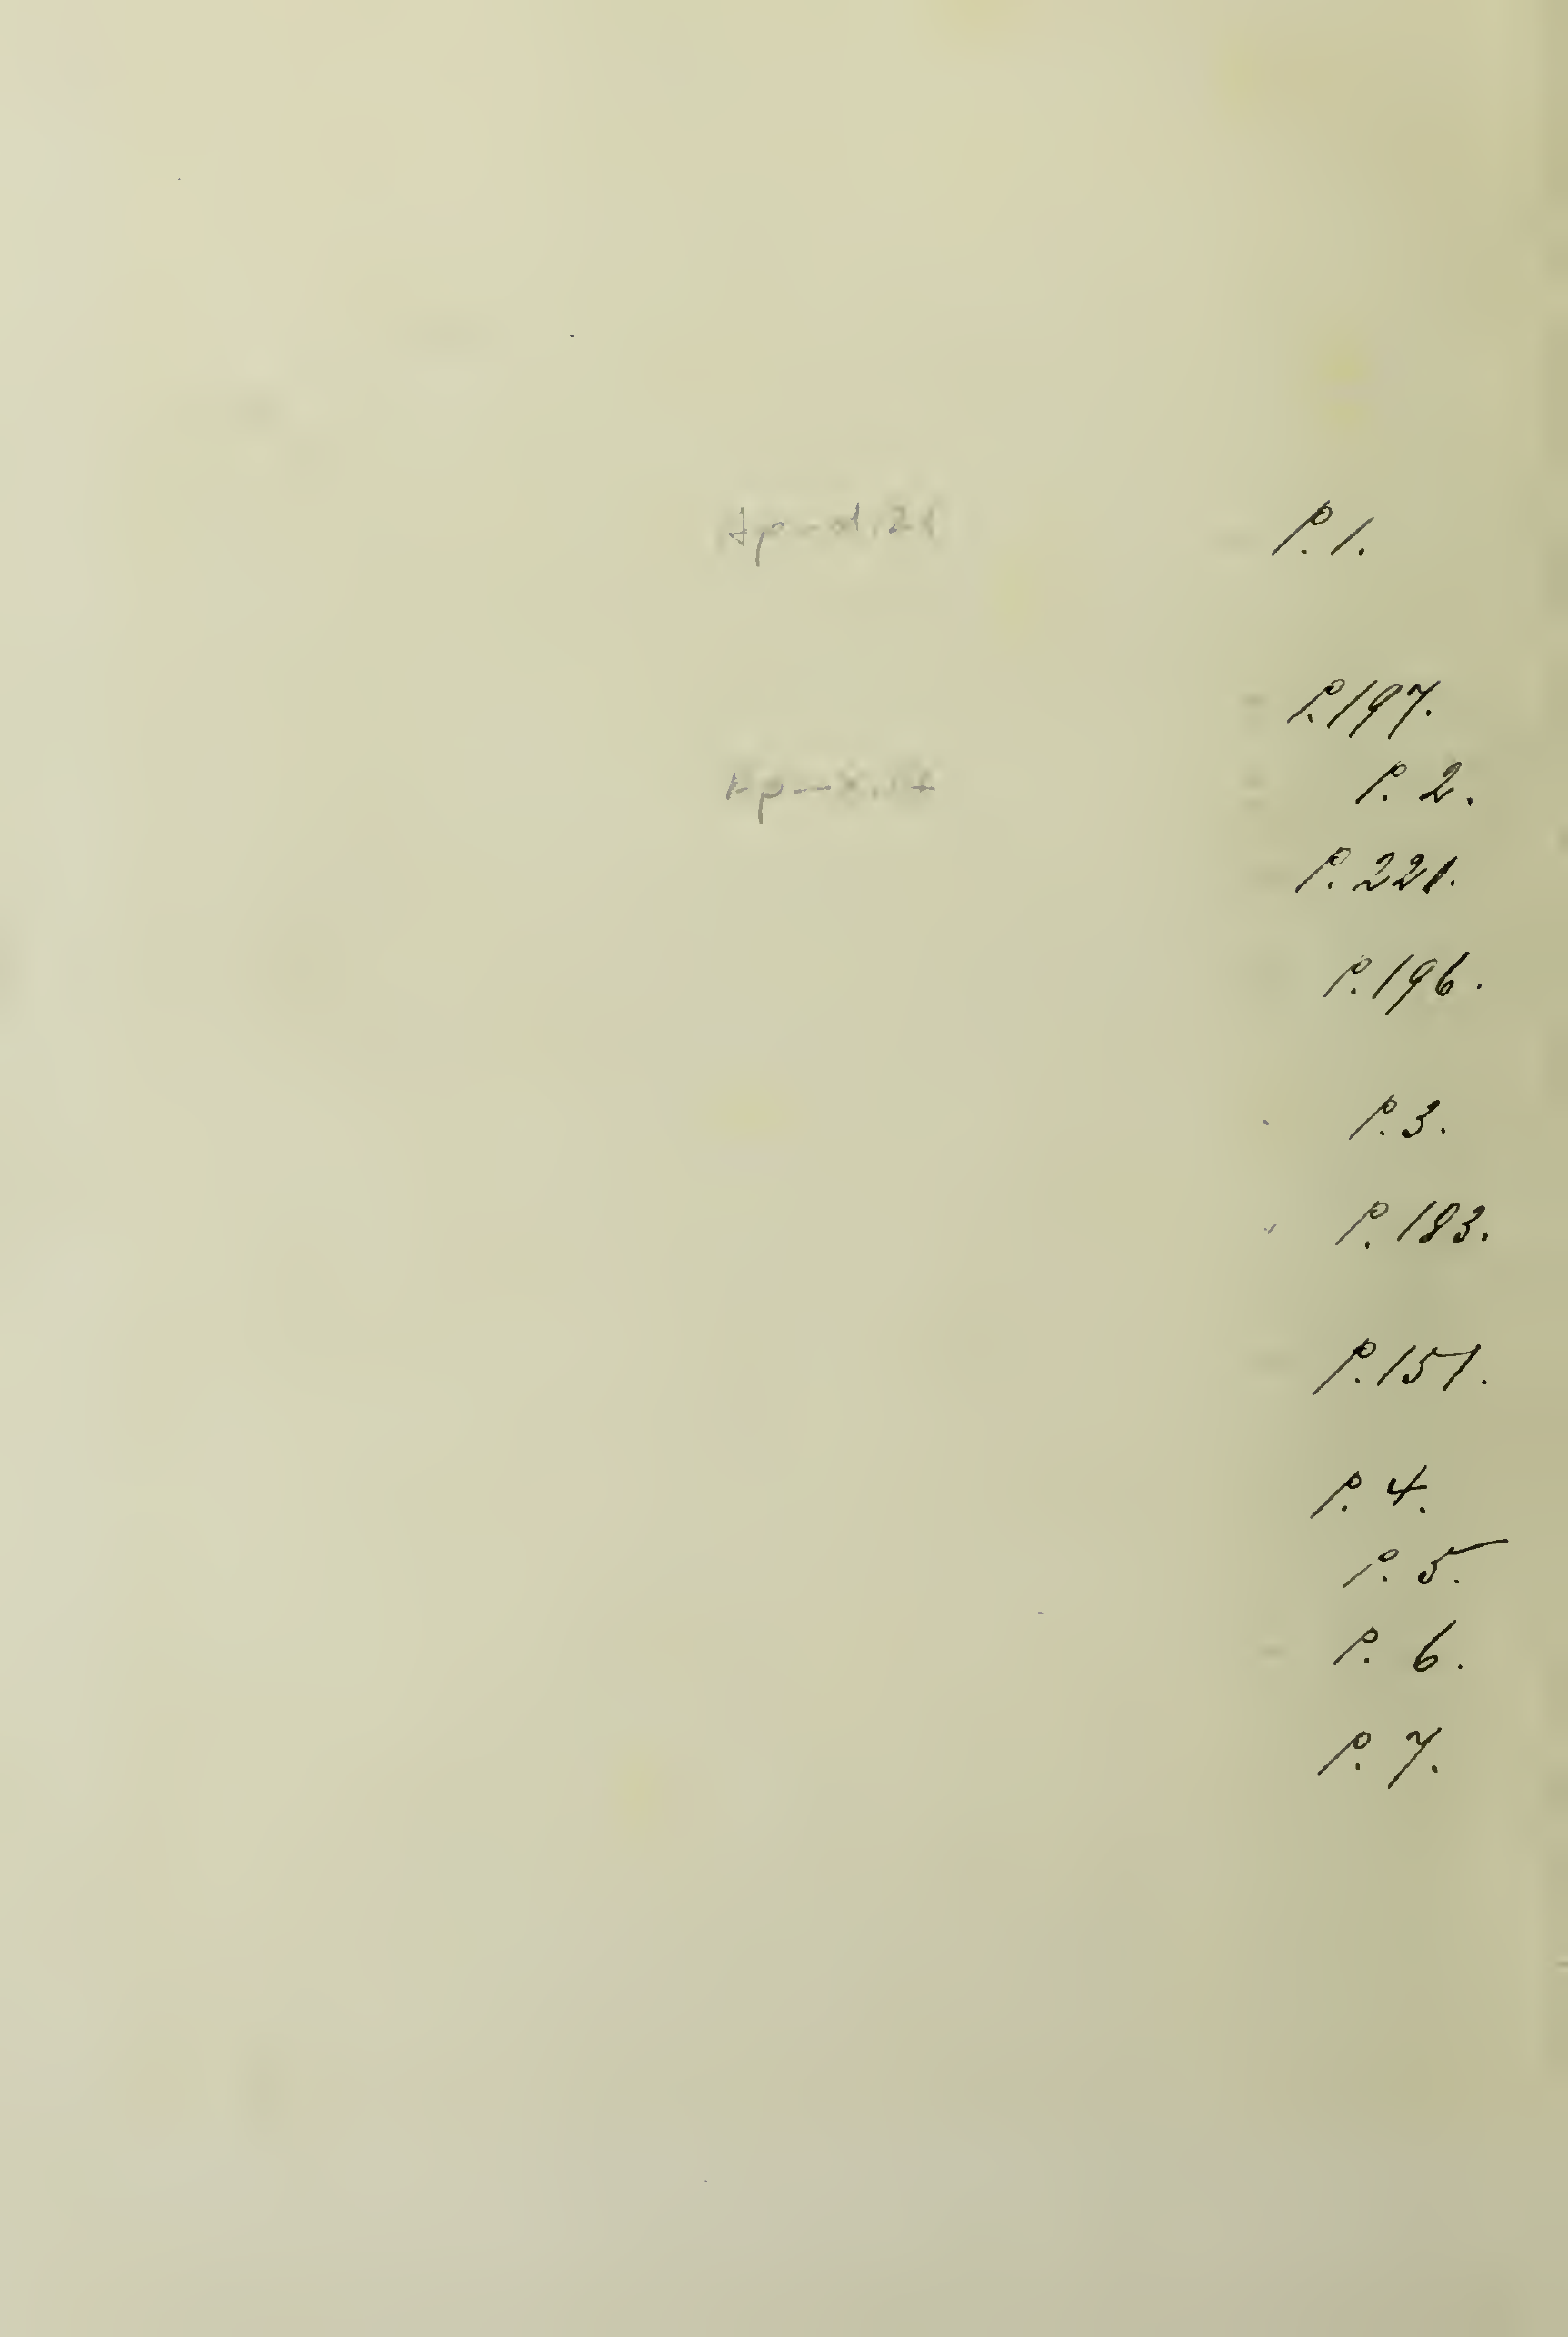 P. 1.
P. 197.
P. 2.
P. 221.
P. 196.
P. 3.
P. 183.
P. 151.
P. 4.
P. 5.
P. 6.
P. 7.